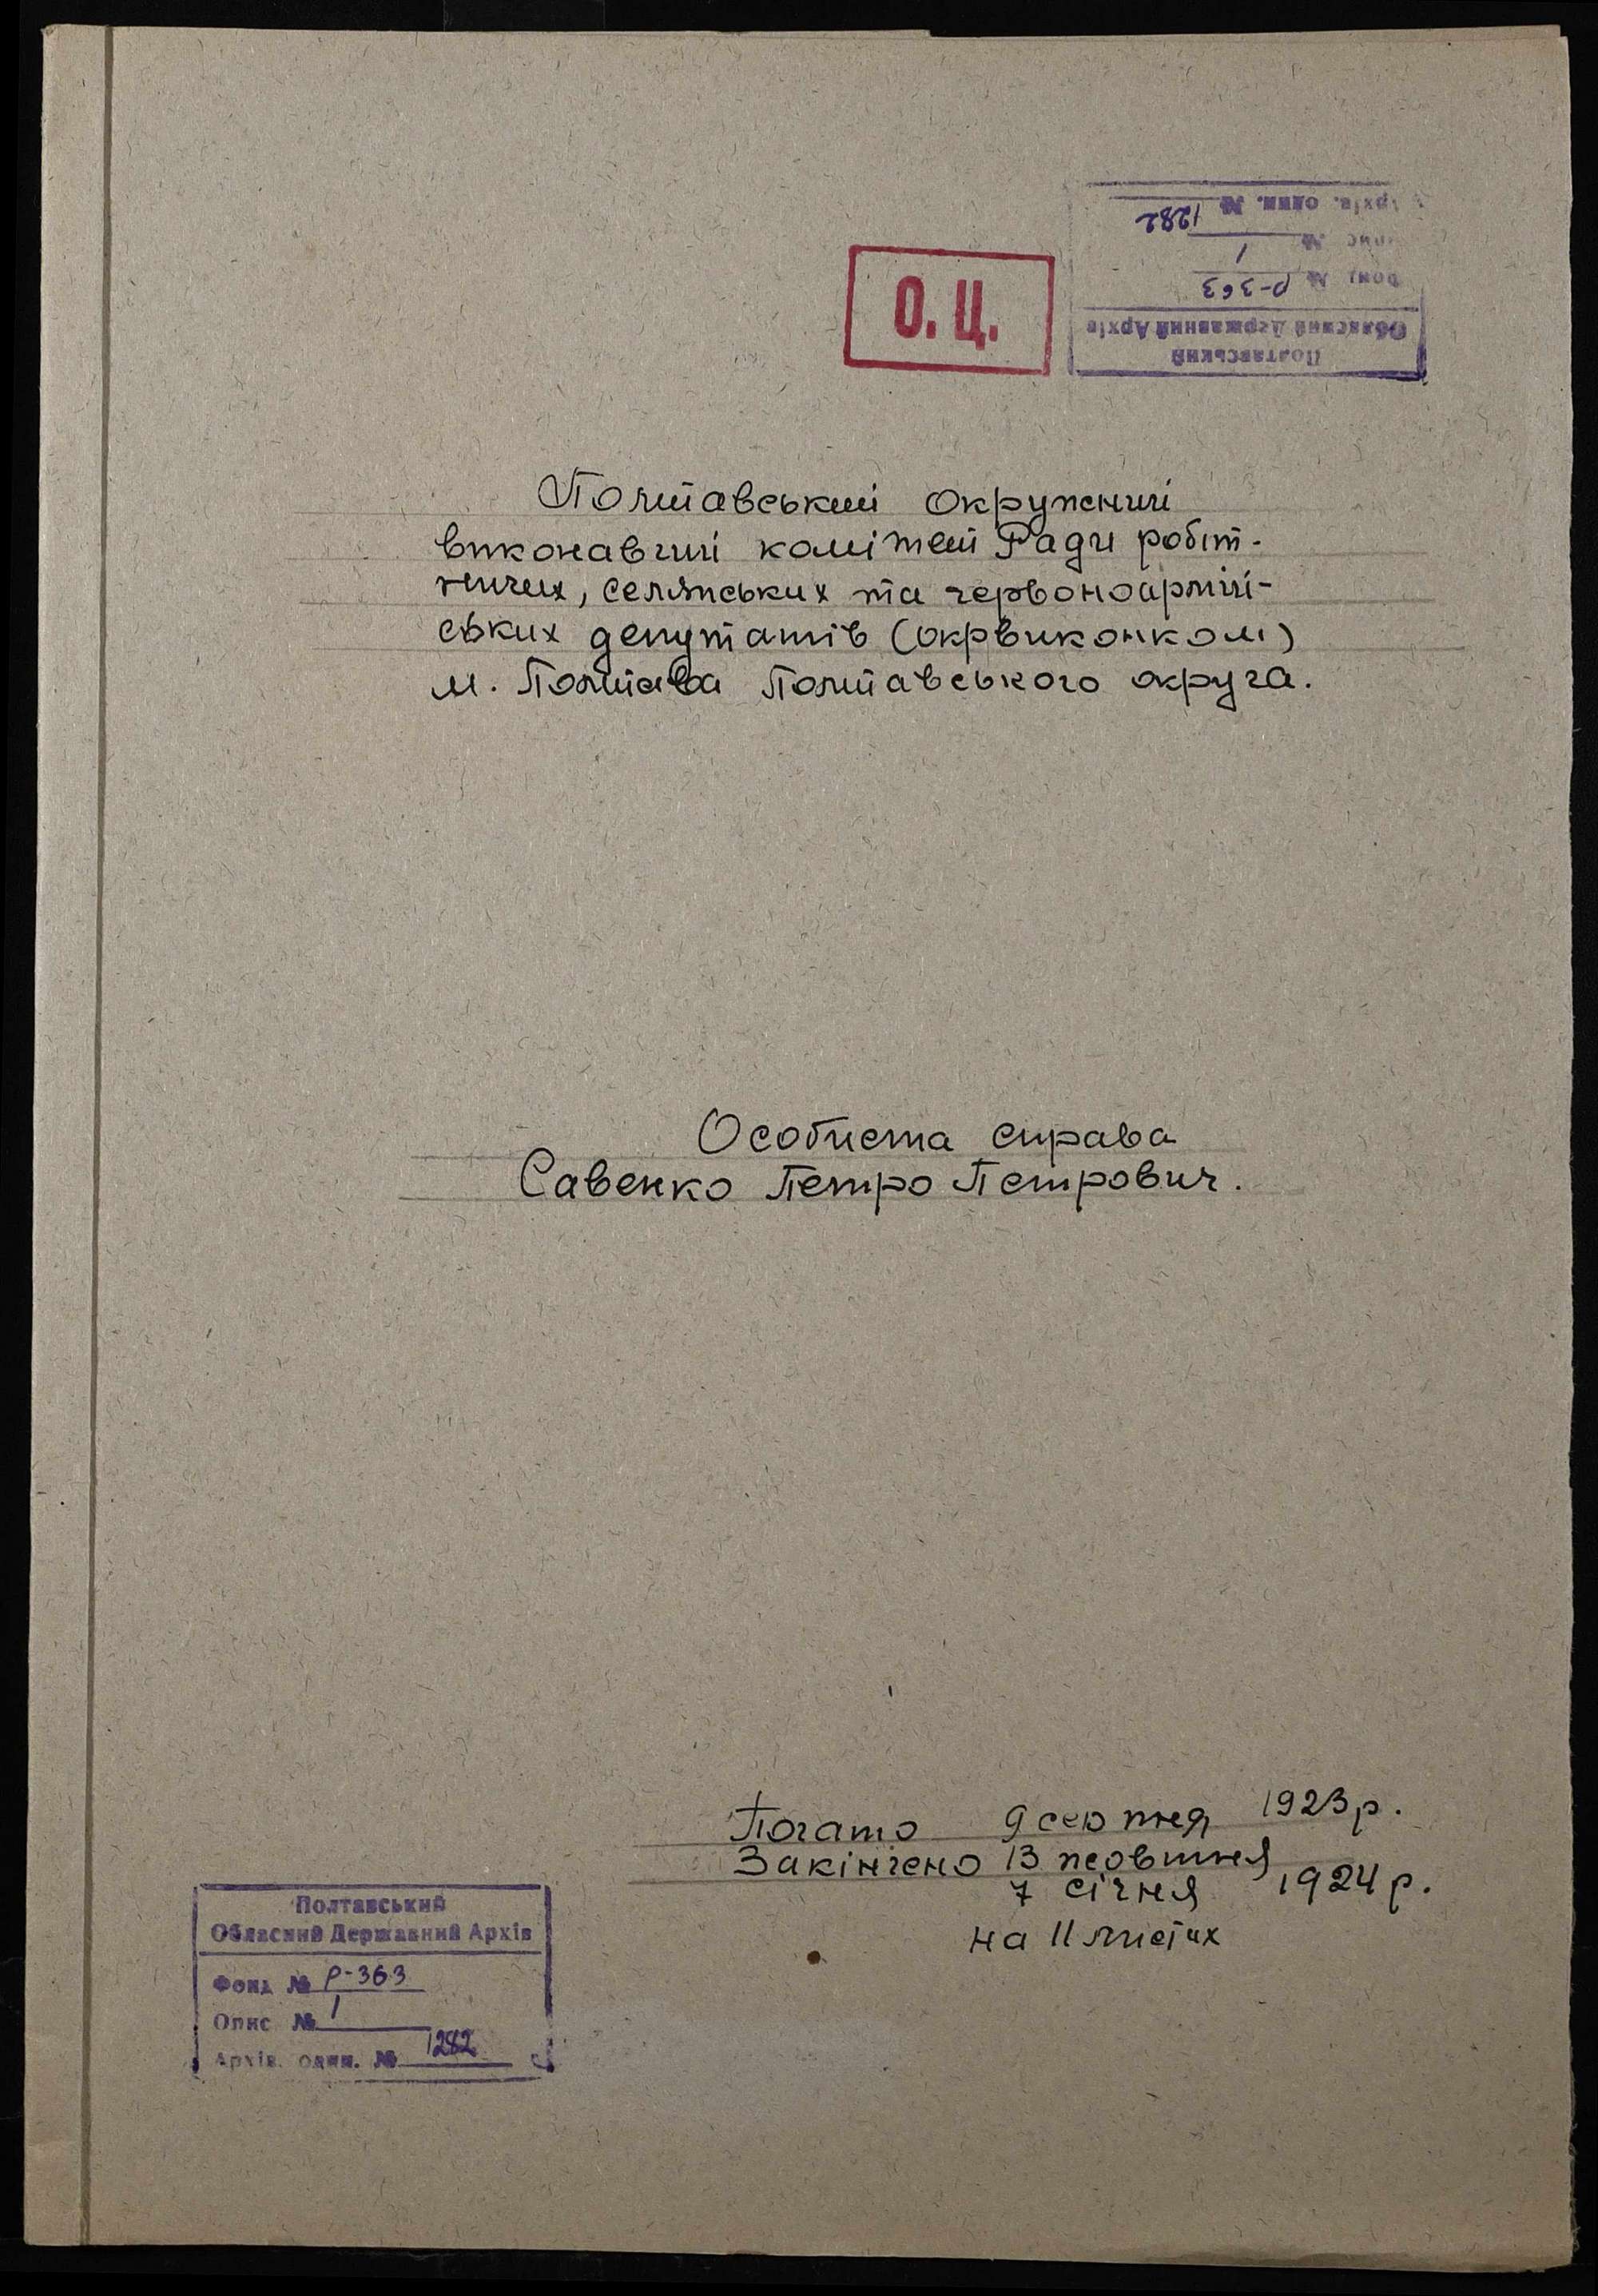 Полтавський
Обласний Державний Архів
Фонд № Р-363
Опис № 1
Архів. один. № 1282
О. Ц.
Полтавський Окружний
виконавчий комітет Ради робіт-
ничих, селянських та червоноармій-
ських депутатів (окрвиконком)
м. Полтава Полтавського округа.
Особиста справа
Савенко Петро Петрович.
Почато 9 серпня 1923 р.
Закінчено 13 жовтня
7 січня 1924 р.
на 11 листах
Полтавський
Обласний Державний Архів
Фонд № Р-363
Опис № 1
Архів. один. № 1282